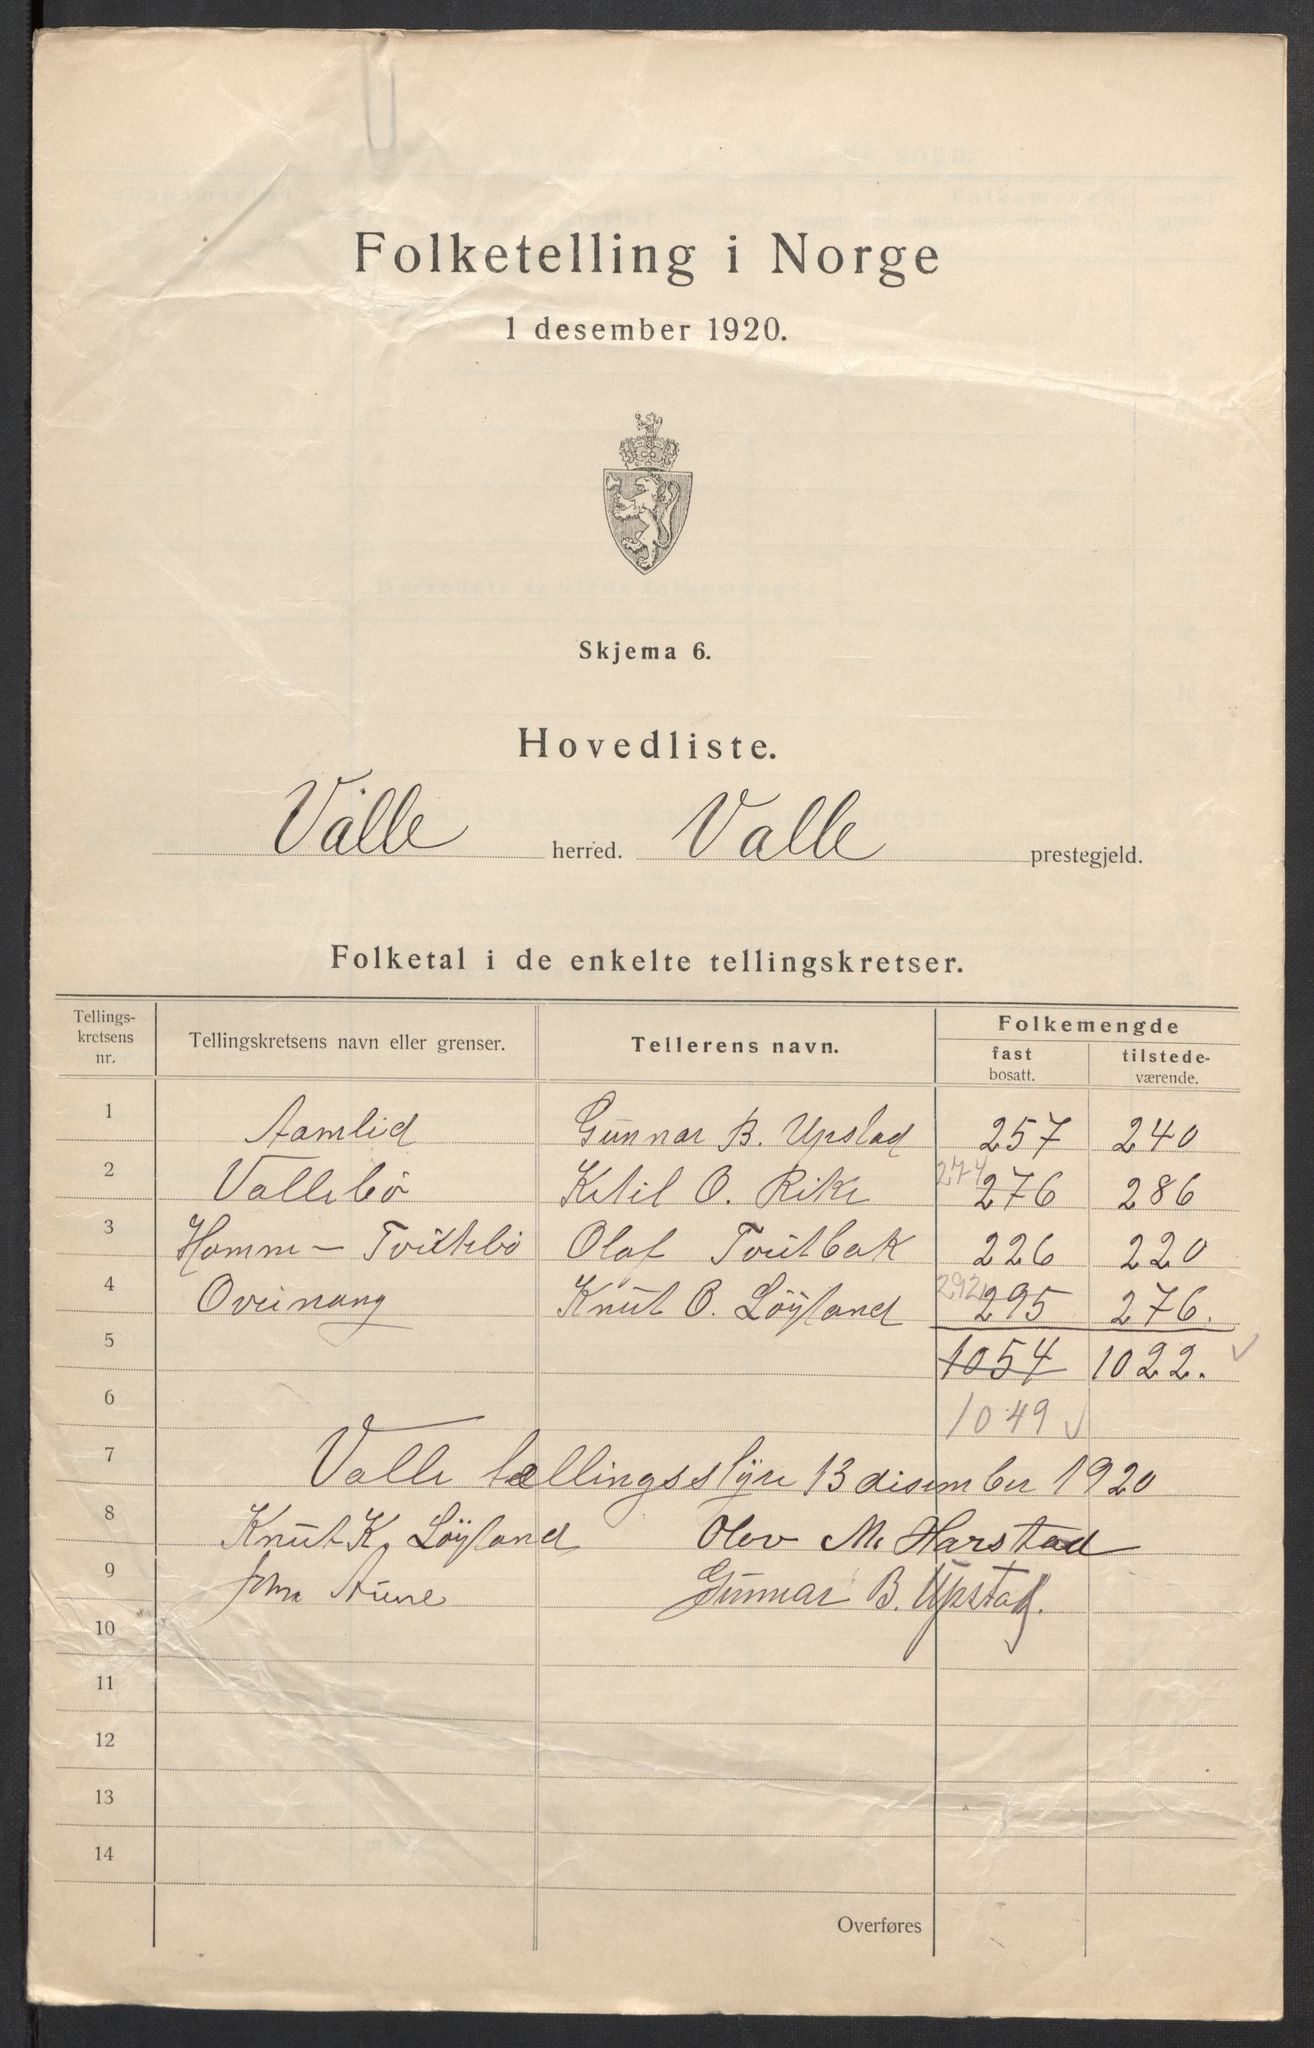 Folketelling i Norge
1 desember 1920.
Skjema 6.
Hovedliste.
Valle herred. Valle prestegjeld.
Folketal i de enkelte tellingskretser.
Tellings-kretsens nr. Tellingskretsens navn eller grenser. Tellerens navn. Folkemengde
fast bosatt. tilstede-værende.
1 Aamlid Gunnar B. Upstad 257 240
2 Vallebö Ketil O. Rike 274 276 286
3 Homme - Tveitebö Olaf Tveitbak 226 220
4 Oveinang Knut O. Löyland 292 295 276.
5 1054 1022.
6 1049
7 Valle tællingsstyre 13 desember 1920
8 Knut K. Löyland Olov M. Harstad
9 John Aune Gunnar B. Upstad.
10
11
12
13
14
Overføres